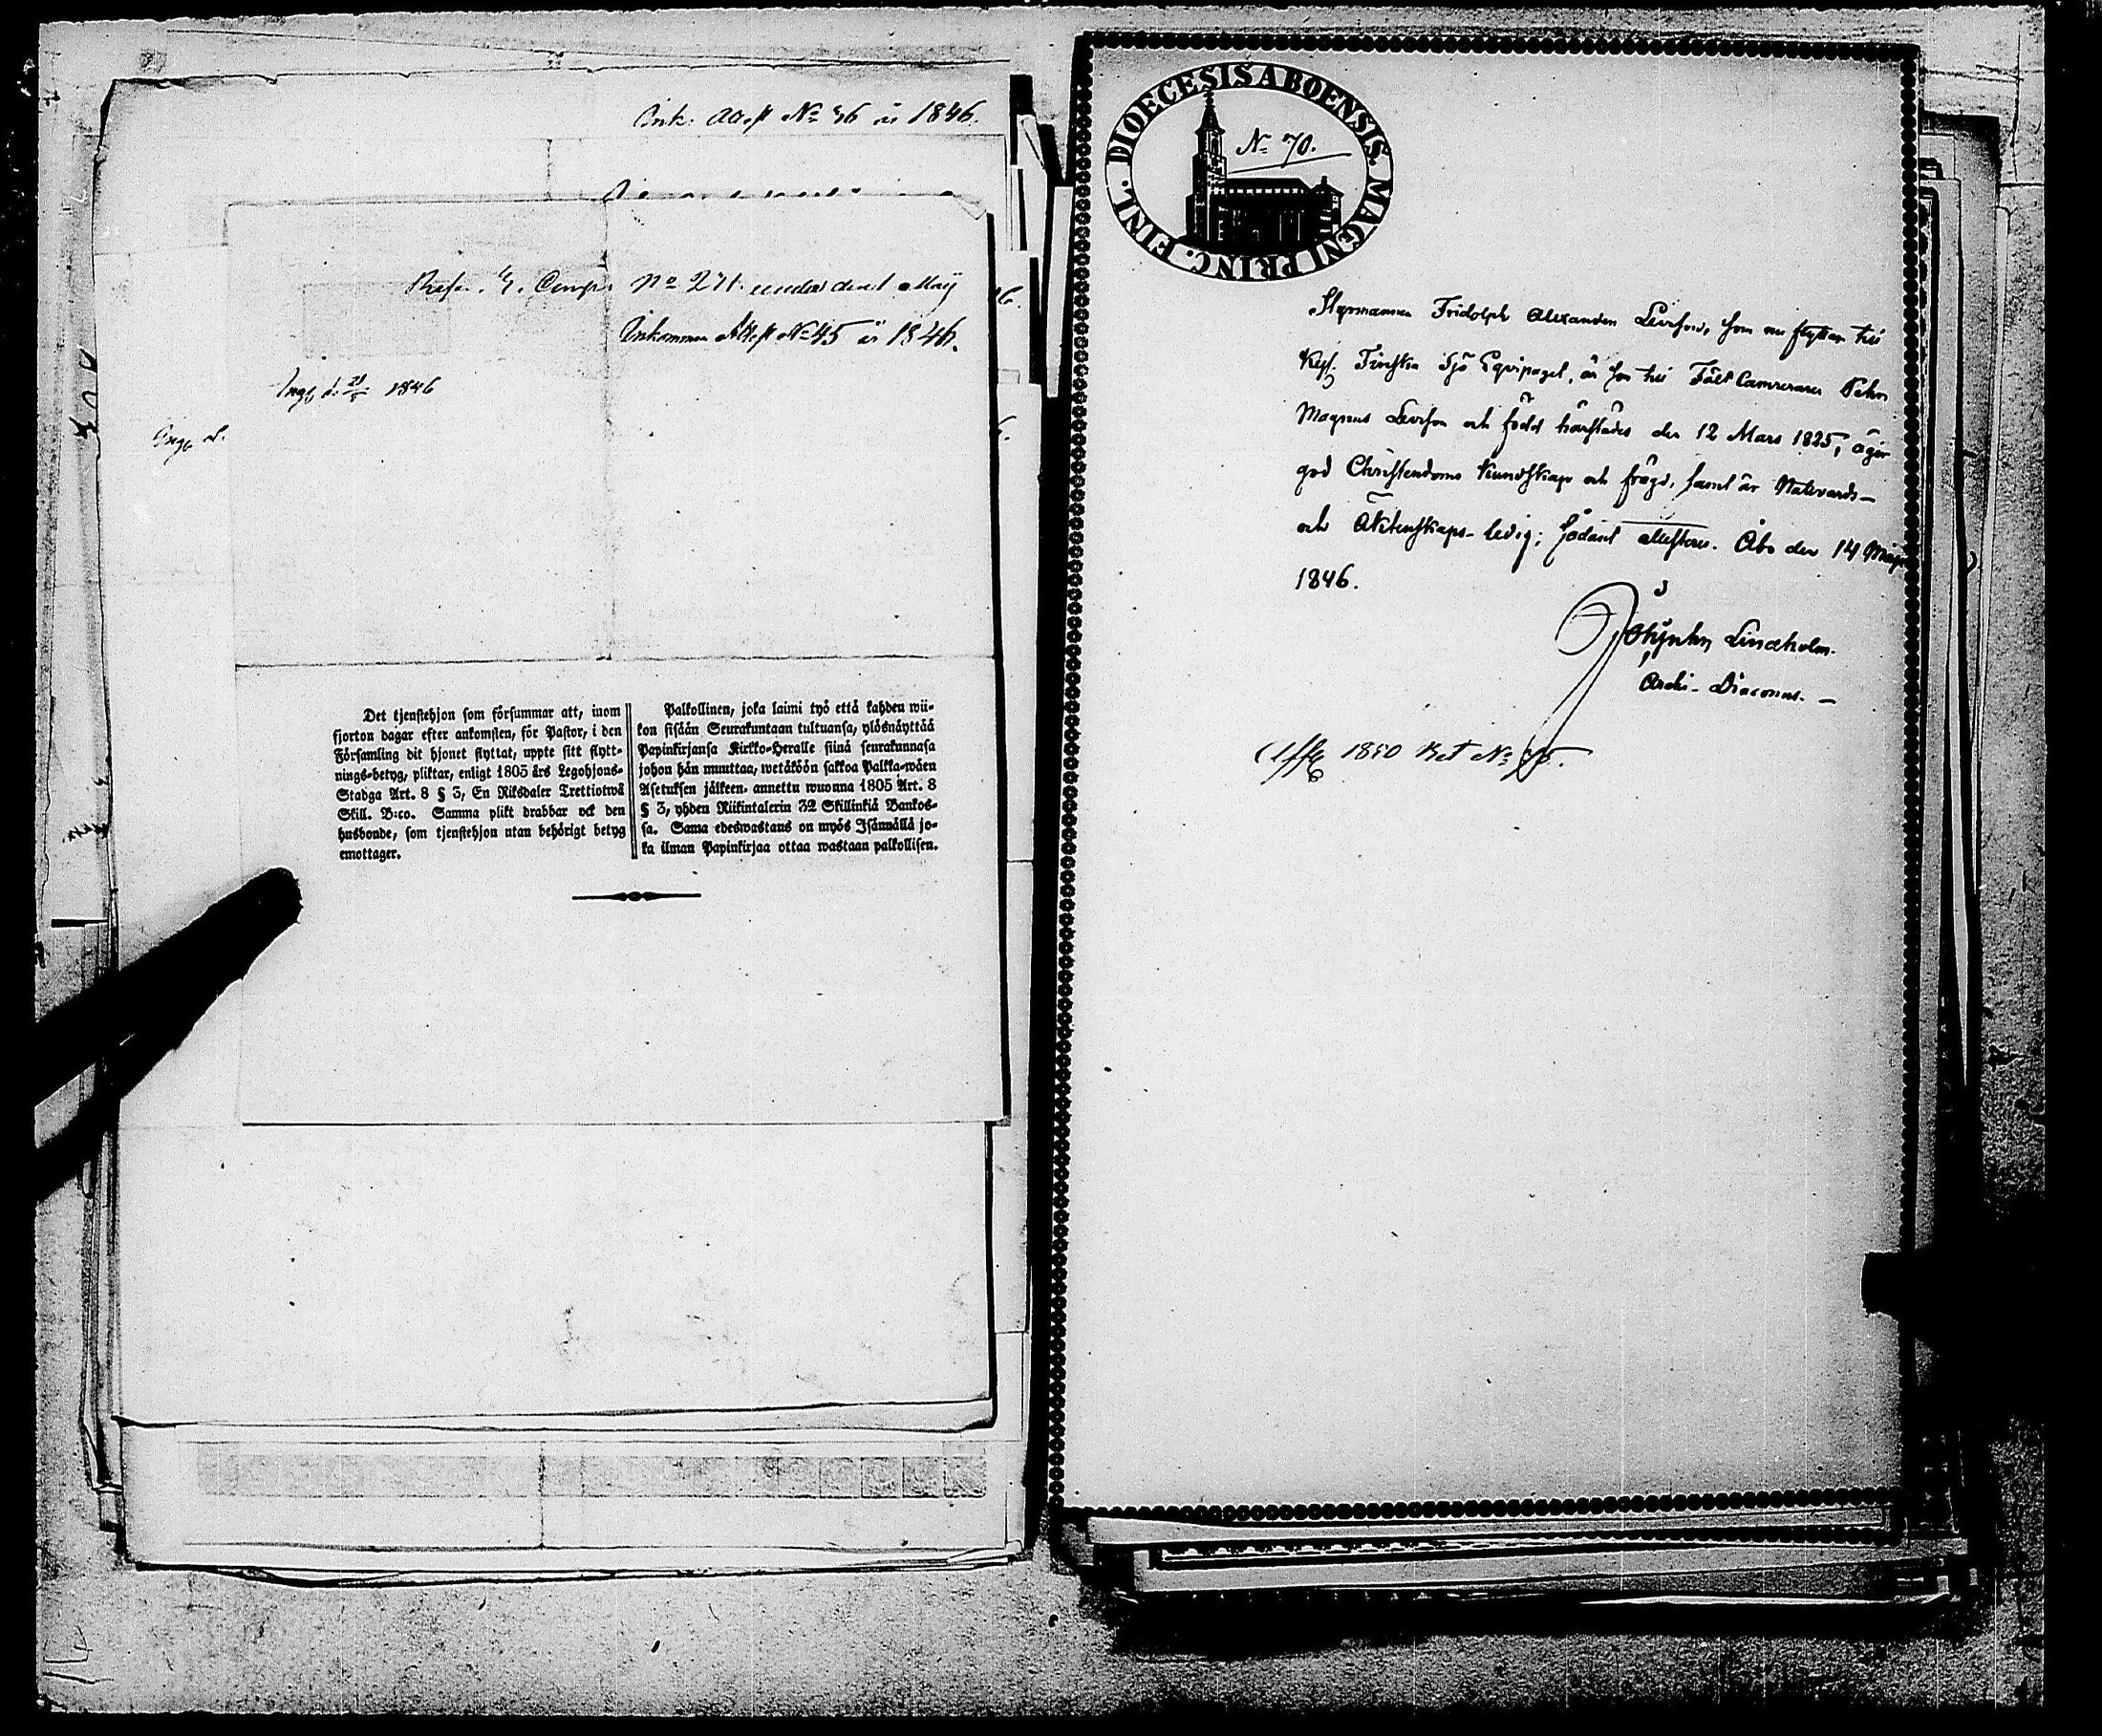 Ink. Attest No 46 år 1846.
No 271 under den 1 Maij
Inkommen Attest No 45 år 1846.
Ingf d. 21/5 1846
Ingf d.
Det tjenstehjon som försummar att, inom
fjorton dagar efter ankomsten, för Pastor, i den
Församling dit hjonet flyttat, uppte sitt flytt-
nings-betyg, pliktar, enligt 1805 års Legohjons-
Stadga Art. 8 § 3, En Riksdaler Trettiotwå
Skill. B:co. Samma plikt drabbar ock den
husbonde, som tjenstehjon utan behörigt betyg
emottager.
Palkollinen, joka laimi lyö että kahden wii-
kon sisään Seurakuntaan tultuansa, ylösnäyttää
Papinkirjansa Kirkko-Herralle siinä seurakunnasa
johon hän muuttaa, wetäköön sakkoa Palkka-wäen
Asetuksen jälkeen, annettu wuonna 1805 Art. 8
§ 3, yhden Riikintalerin 32 Skillinkiä Bankos-
sa. Sama edeswastaus on myös Isännällä jo-
ka ilman Papinkirjaa ottaa wastaan palkollisen.
DIOECESIS ABOENSIS. MAGNI PRINC. FINL.
No 70.
Styrmannen Fridolph Alexander Levison, som nu flyttar till
Kejs. Finska Sjö Eqvipaget, är son till Fält Camreraren Pehr
Magnus Levison och född härstädes den 12 Mars 1825, äger
god Christendoms kundskap och frägd, samt är Nattvards-
och Äktenskaps-ledig; sådant attesterar. Åbo den 14 Maji
1846.
Lindholm.
Archi-Diaconus.
1850 Bet No 75.